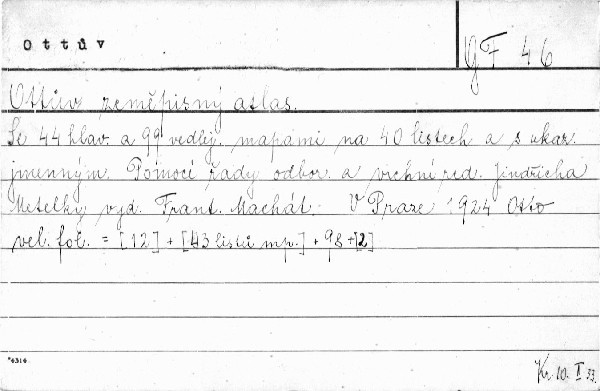 Ottův
gF 46
Ottův zeměpisný atlas.
Se 44 hlav. a 99 vedlej. mapami na 40 listech a s ukaz.
jmenným. Pomocí řady odbor. a vrchní red. Jindřicha
Metelky vyd. Frant. Machát. V Praze 1924 Otto
vel. fol. = [12] + [43 listů mp.] + 98 + [2]
*6314
Kr. 10. I 33.